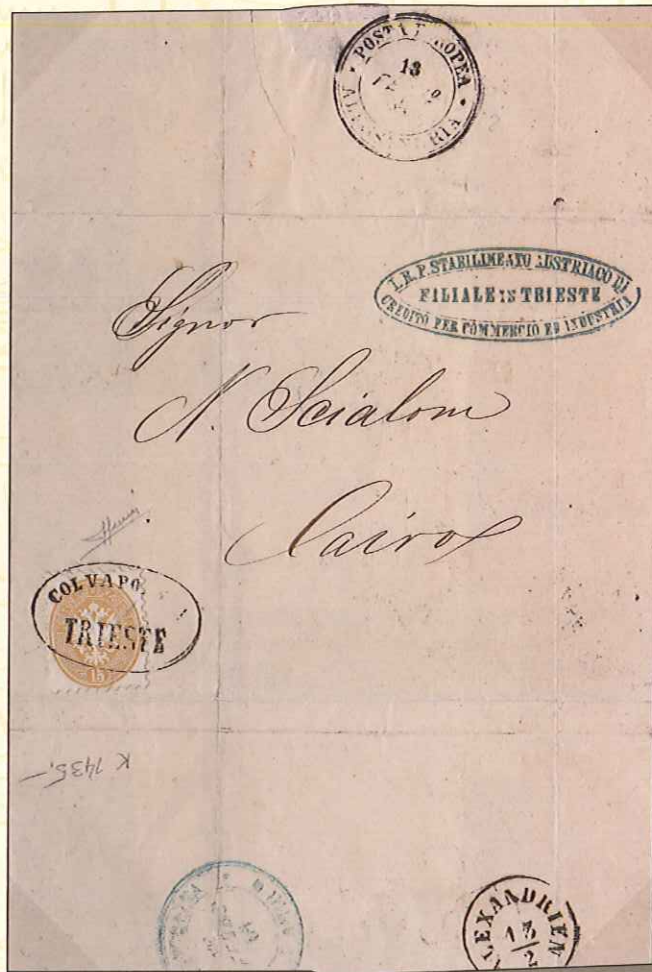 POSTA EUROPEA
13
ALESSANDRIA
I.R.P. STABILIMENTO AUSTRIACO DI
FILIALE IN TRIESTE
CREDITO PER COMMERCIO ED INDUSTRIA
Signor
N. Scialom
Cairo
COL VAPO
TRIESTE
15
K 1435.-
ALEXANDRIEN
13
2